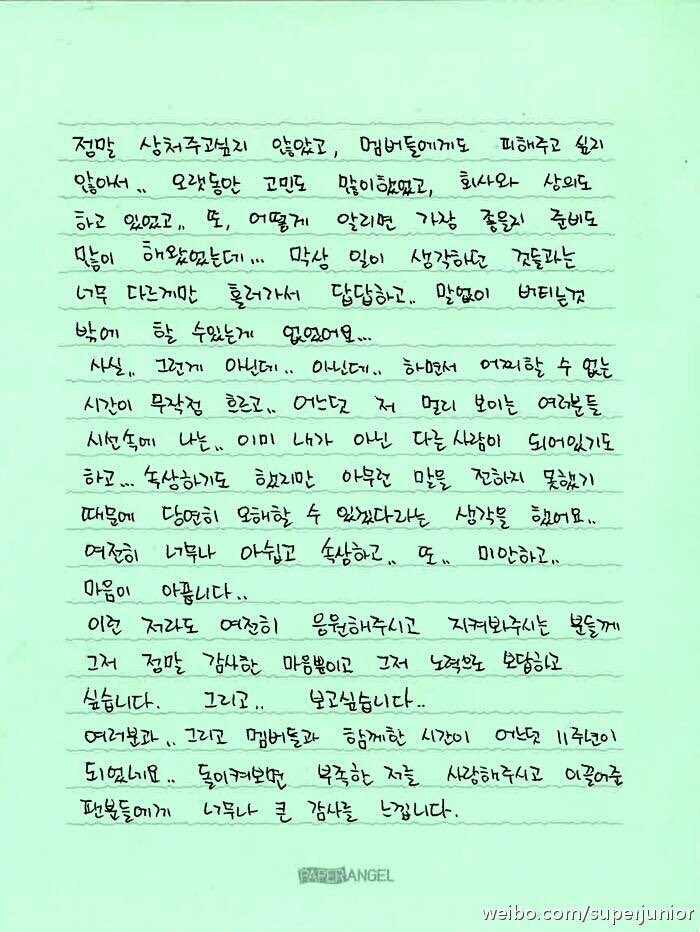 정말 상처주고싶지 않았고, 멤버들에게도 피해주고 싶지
않아서.. 오랫동안 고민도 많이했었고, 회사와 상의도
하고 있었고.. 또, 어떻게 알리면 가장 좋을지 준비도
많이 해왔었는데... 막상 일이 생각하던 것들과는
너무 다르게만 흘러가서 답답하고.. 말없이 버티는것
밖에 할 수있는게 없었어요...
사실.. 그런게 아닌데.. 아닌데.. 하면서 어찌할 수 없는
시간이 무작정 흐르고.. 어느덧 저 멀리 보이는 여러분들
시선속에 나는.. 이미 내가 아닌 다른사람이 되어있기도
하고... 속상하기도 했지만 아무런 말을 전하지 못했기
때문에 당연히 오해할 수 있겠다라는 생각을 했어요..
여전히 너무나 아쉽고 속상하고.. 또.. 미안하고..
마음이 아픕니다..
이런 저라도 여전히 응원해주시고 지켜봐주시는 분들께
그저 정말 감사한 마음뿐이고 그저 노력으로 보답하고
싶습니다. 그리고.. 보고싶습니다..
여러분과.. 그리고 멤버들과 함께한 시간이 어느덧 11주년이
되었네요.. 돌이켜보면 부족한 저를 사랑해주시고 이끌어준
팬분들에게 너무나 큰 감사를 느낍니다.
PAPER ANGEL
weibo.com/superjunior